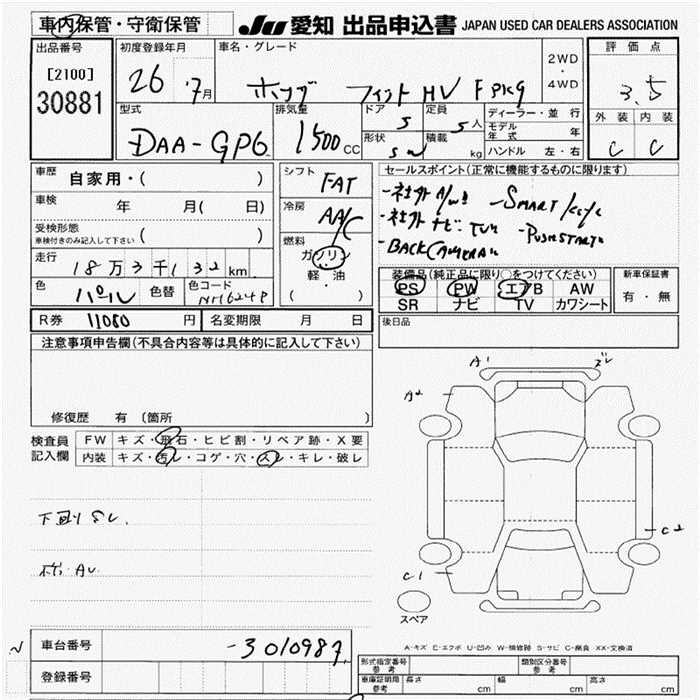 車内保管・守衛保管 JU 愛知 出品申込書 JAPAN USED CAR DEALERS ASSOCIATION
出品番号 初度登録年月 車名・グレード 2WD ・ 4WD 評価点
[2100] 26 7月 ホンダ フィット HV F PKG 3.5
30881
型式 排気量 ドア 定員 ディーラー・並行 外装 内装
DAA-GP6 1500CC 5 5人 モデル年式 年 C C
形状 積載 kg ハンドル 左・右
車歴 自家用・( ) シフト FAT セールスポイント(正常に機能するものに限ります)
車検 年 月( 日) 冷房 AA/C -社外A/W! -SMART/
受検形態 車検付きのみ記入して下さい ( ) 燃料 ガソリン -社外ナビ・TV -PUSHSTART
走行 18万3千132km 軽・油 -BACK CAMERA
( ) 装備品(純正品に限り○をつけてください) 新車保証書
色 パール 色替 色コード NH624P PS PW エアB AW 有・無
SR ナビ TV カワシート
R券 11080円 名変期限 月 日 後日品
注意事項申告欄(不具合内容等は具体的に記入して下さい)
A1 ズレ
A2
修復歴 有 〔箇所 〕
検査員記入欄 FW キズ・飛石・ヒビ割・リペア跡・X要
内装 キズ・汚レ・コゲ・穴・スレ・キレ・破レ
下廻りサビ
C2
C1
スペア
A-キズ E-エクボ U-凹み W-補修跡 S-サビ C-腐食 XX-交換済
車台番号 -3010987
登録番号
型式指定番号 参考 類別区分番号 参考
車庫証明用 参考 長さ cm 幅 cm 高さ cm